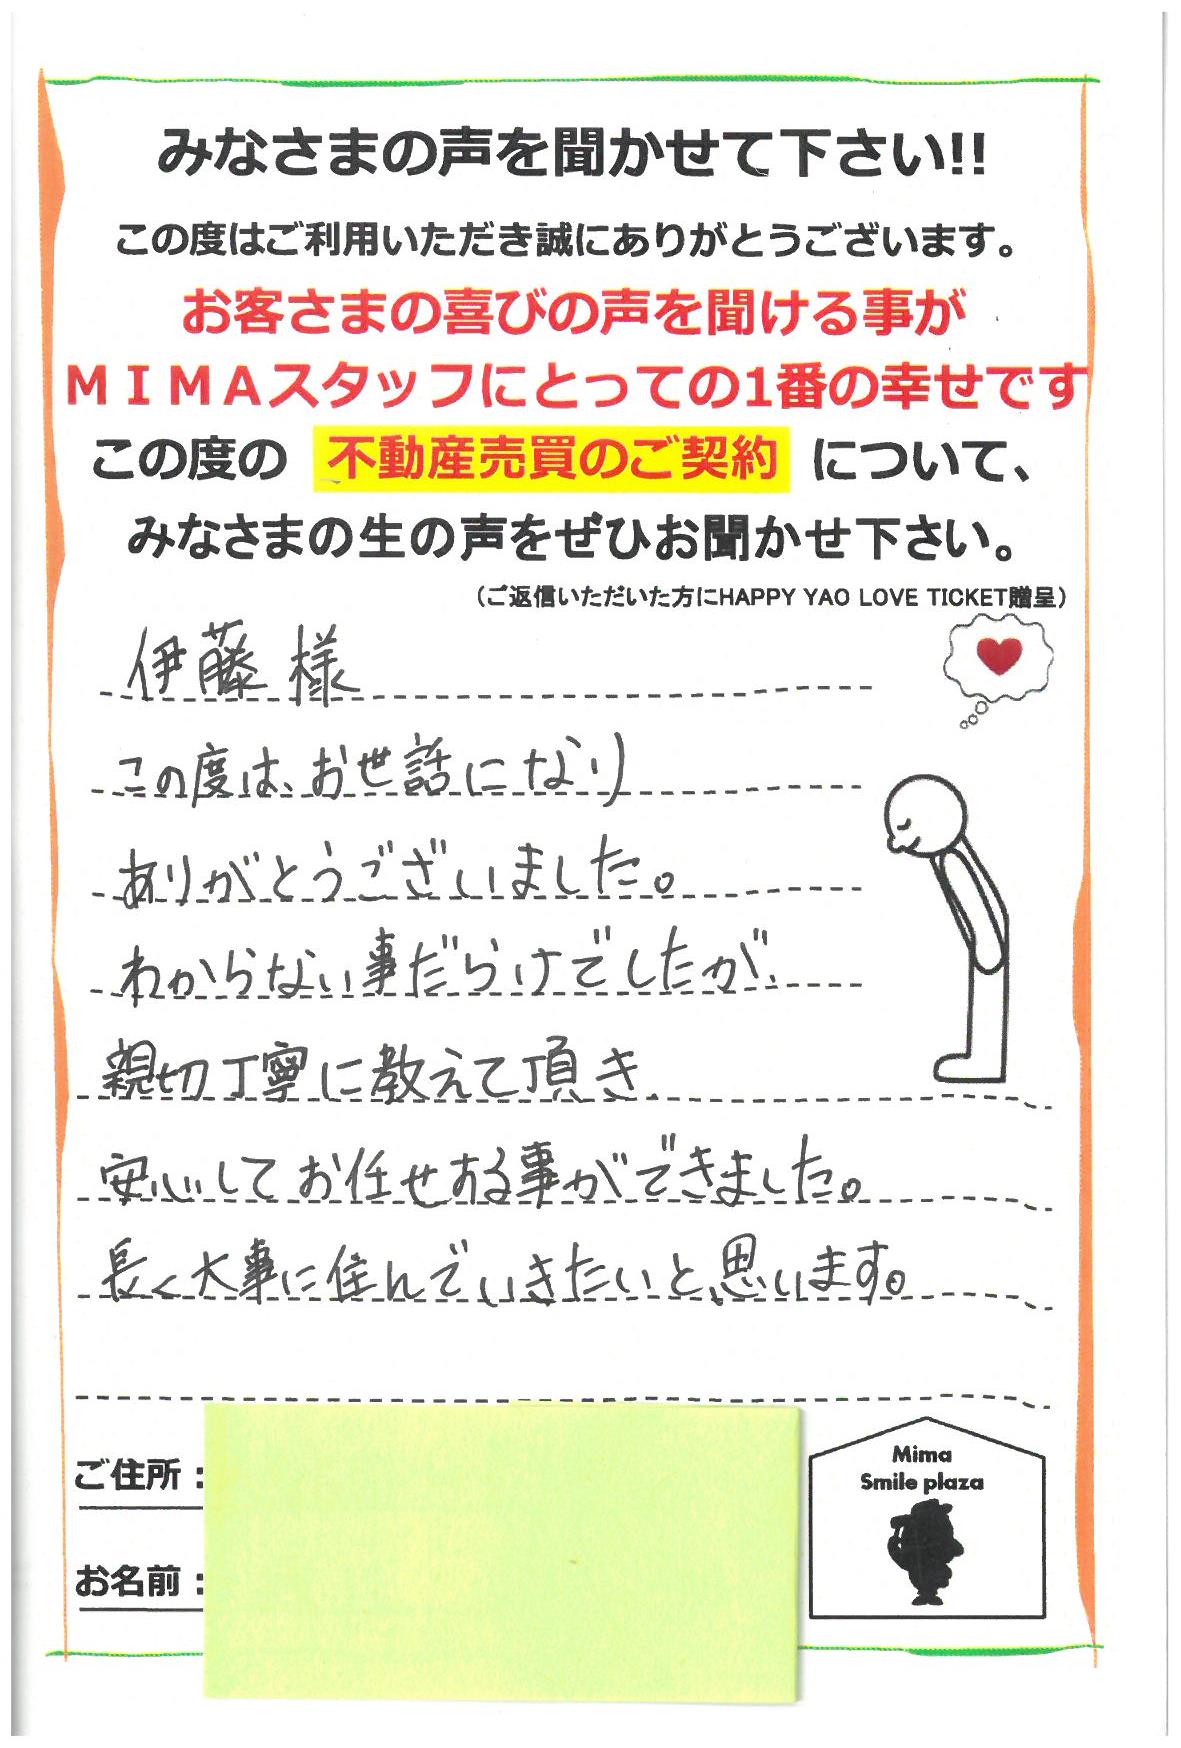 みなさまの声を聞かせて下さい!!
この度はご利用いただき誠にありがとうございます。
お客さまの喜びの声を聞ける事が
ＭＩＭＡスタッフにとっての1番の幸せです
この度の 不動産売買のご契約 について、
みなさまの生の声をぜひお聞かせ下さい。
（ご返信いただいた方にHAPPY YAO LOVE TICKET贈呈）
伊藤様
この度は、お世話になり
ありがとうございました。
わからない事だらけでしたが、
親切丁寧に教えて頂き、
安心してお任せある事ができました。
長く大事に住んでいきたいと思います。
ご住所：
お名前：
Mima
Smile plaza